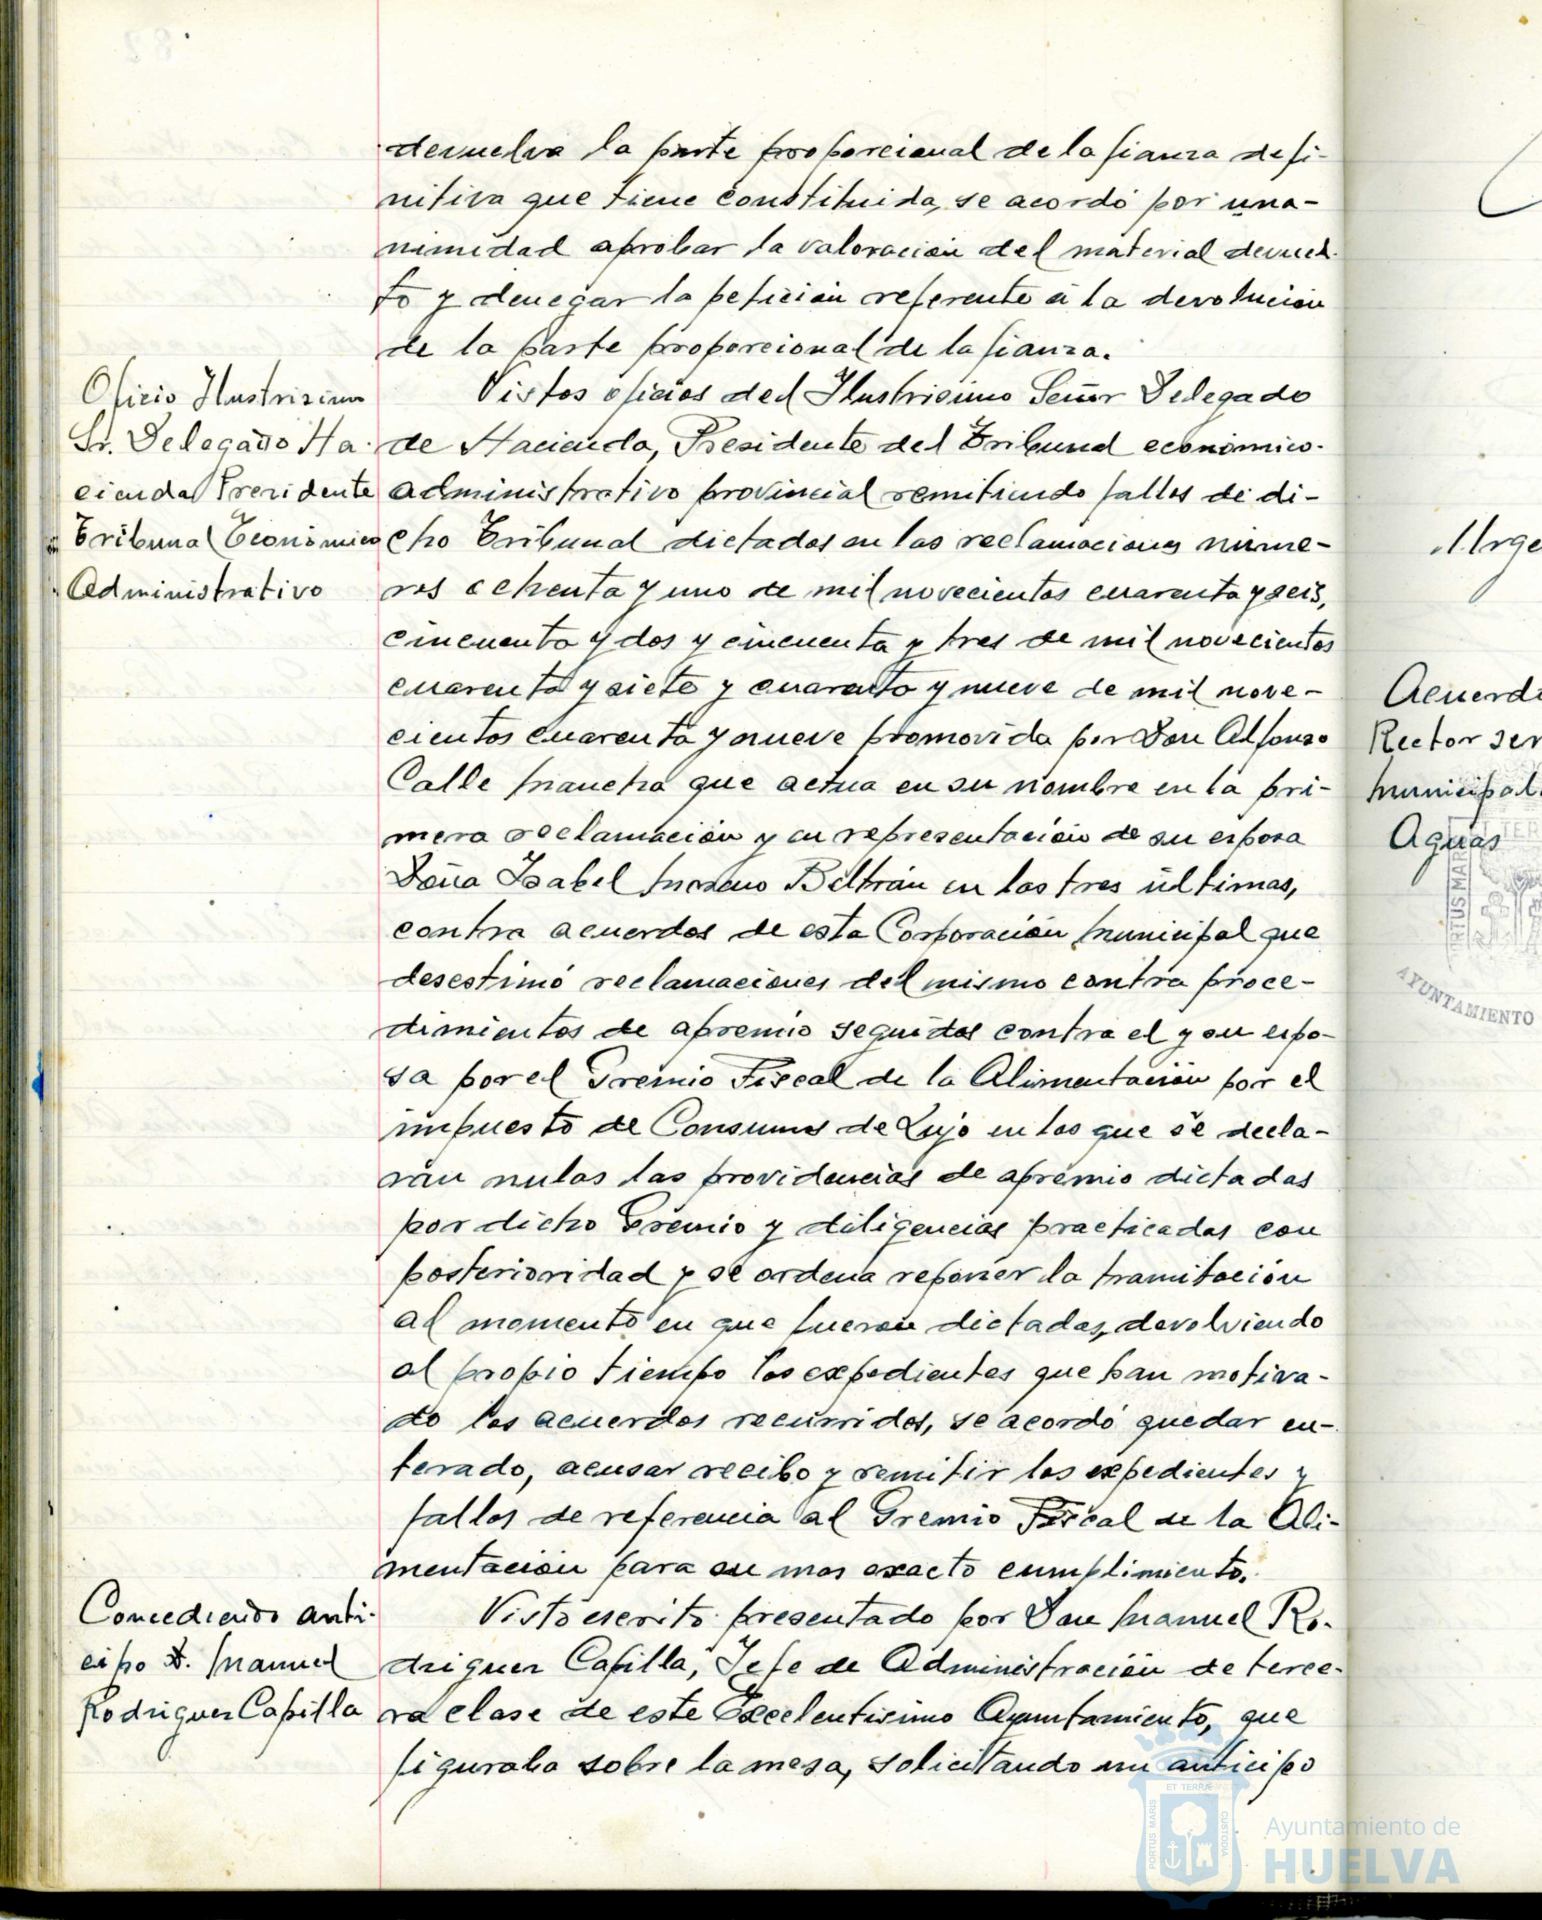 devuelva la parte proporcional de la fianza defi-
nitiva que tiene constituida, se acordó por una-
nimidad aprobar la valoración del material devuel-
to y denegar la petición referente a la devolución
de la parte proporcional de la fianza.
Oficio Ilustrisimo
Sr. Delegado Ha-
cienda Presidente
Tribunal Económico
Administrativo
Vistos oficios del Ilustrisimo Señor Delegado
de Hacienda, Presidente del Tribunal económico-
administrativo provincial remitiendo fallos de di-
cho Tribunal dictados en las reclamaciones núme-
ros ochenta y uno de mil novecientos cuarenta y seis,
cincuenta y dos y cincuenta y tres de mil novecientos
cuarenta y siete y cuarenta y nueve de mil nove-
cientos cuarenta y nueve promovida por Don Alfonso
Calle Mancha que actua en su nombre en la pri-
mera reclamación y en representación de su esposa
Doña Isabel Moreno Beltrán en las tres últimas,
contra acuerdos de esta Corporación Municipal que
desestimó reclamaciones del mismo contra proce-
dimientos de apremio seguidos contra el y su espo-
sa por el Gremio Fiscal de la Alimentación por el
impuesto de Consumos de Lujo en los que se decla-
ran nulas las providencias de apremio dictadas
por dicho Gremio y diligencias practicadas con
posterioridad y se ordena reponer la tramitación
al momento en que fueron dictadas, devolviendo
al propio tiempo los expedientes que han motiva-
do los acuerdos recurridos, se acordó quedar en-
terado, acusar recibo y remitir los expedientes y
fallos de referencia al Gremio Fiscal de la Ali-
mentación para su mas exacto cumplimiento.
Concediendo anti-
cipo D. Manuel
Rodriguez Capilla
Visto escrito presentado por Don Manuel Ro-
driguez Capilla, Jefe de Administración de terce-
ra clase de este Excelentisimo Ayuntamiento, que
figuraba sobre la mesa, solicitando un anticipo
Urge
Acuerdo
Rector ser
Municipal
Aguas
AYUNTAMIENTO
ET TERRÆ
PORTUS MARIS
CUSTODIA
Ayuntamiento de
HUELVA